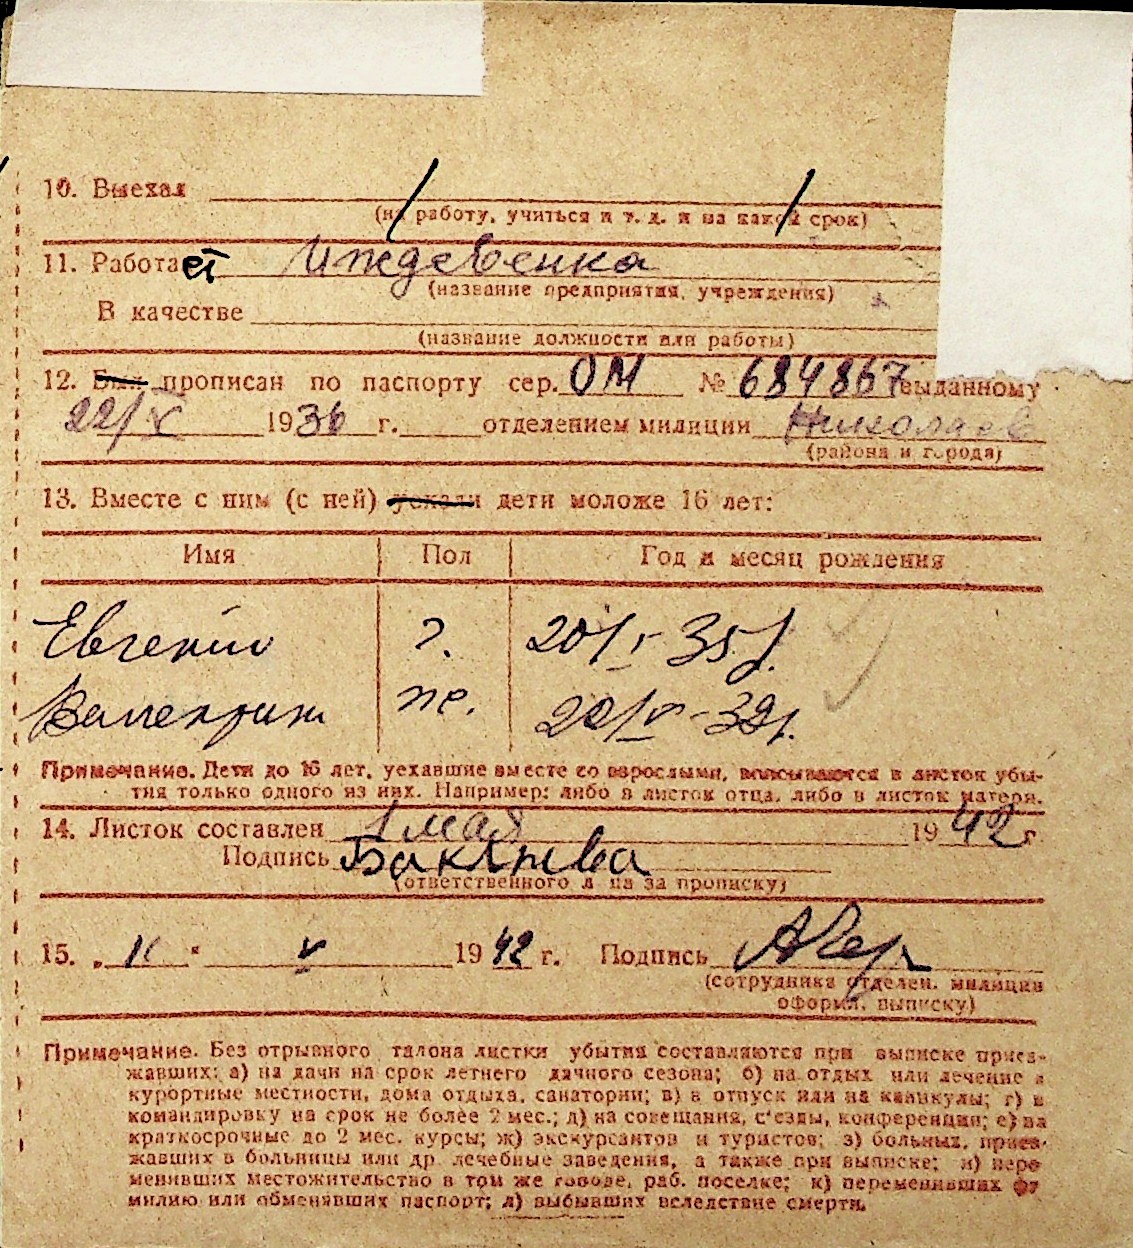 10. Выехал
(на работу, учиться и т. д. и на какой срок)
11. Работает Иждевенка
(название предприятия, учреждения)
В качестве
(название должности или работы)
12. Был прописан по паспорту сер. ОМ № 684867 выданному
22/X 1936 г. отделением милиции Николаев
(района и города)
13. Вместе с ним (с ней) уехали дети моложе 16 лет:
Имя Пол Год и месяц рождения
Евгений 20/I-35г.
Валентин 20/V-39г.
Примечание. Дети до 16 лет, уехавшие вместе со взрослыми, вписываются в листок убы-
тия только одного из них. Например: либо в листок отца, либо в листок матери.
14. Листок составлен 1 мая 1942 г
Подпись
(ответственного л ца за прописку)
15. „ V 1942 г. Подпись
(сотрудника отделен. милиции
оформ. выписку)
Примечание. Без отрывного талона листки убытия составляются при выписке приез-
жавших: а) на дачи на срок летнего дачного сезона; б) на отдых или лечение в
курортные местности, дома отдыха, санатории; в) в отпуск или на каникулы; г) в
командировку на срок не более 2 мес.; д) на совещания, с'езды, конференции; е) на
краткосрочные до 2 мес. курсы; ж) экскурсантов и туристов; з) больных, приез-
жавших в больницы или др. лечебные заведения, а также при выписке; и) пере
менивших местожительство в том же городе, раб. поселке; к) переменивших фа
милию или обменявших паспорт; л) выбывших вследствие смерти.